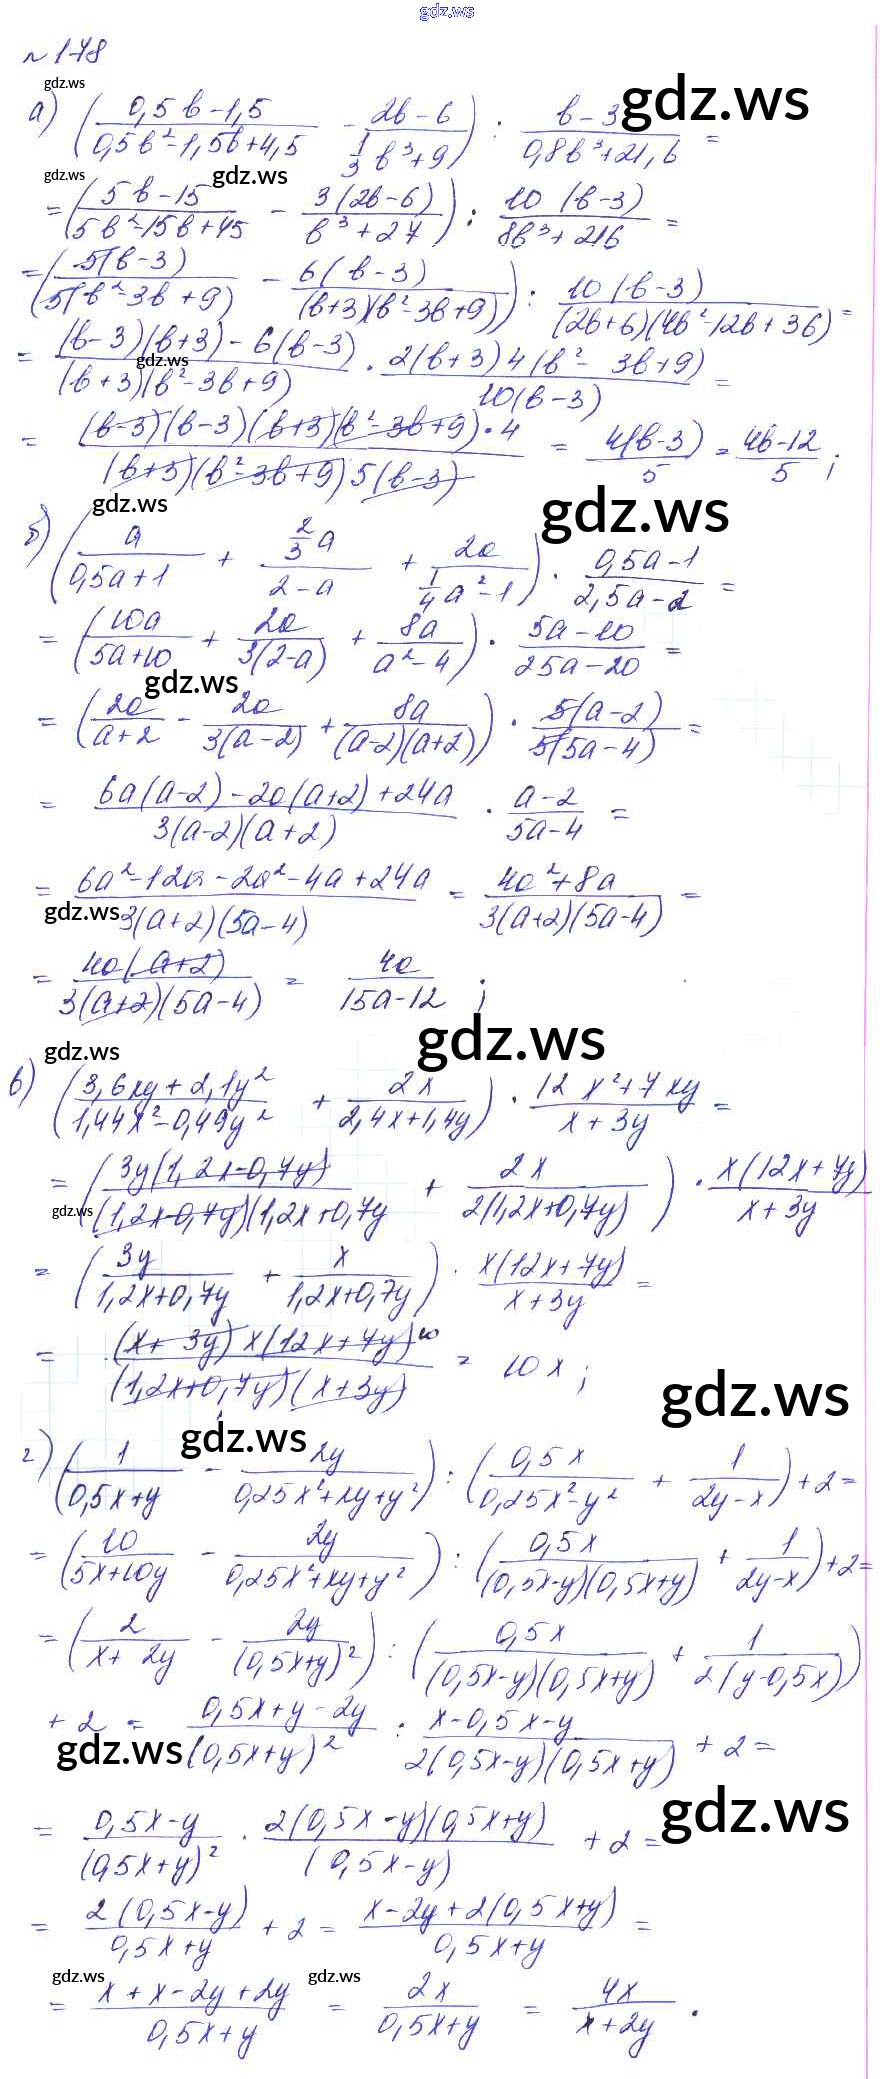 gdz.ws
№ 178
gdz.ws
а) ((0,5b-1,5)/(0,5b²-1,5b+4,5) - (2b-6)/(1/3 b³+9)) : (b-3)/(0,8b³+21,6) =
gdz.ws
gdz.ws gdz.ws
= ((5b-15)/(5b²-15b+45) - 3(2b-6)/(b³+27)) : 10(b-3)/(8b³+216) =
= (5(b-3)/(5(b²-3b+9)) - 6(b-3)/((b+3)(b²-3b+9))) : 10(b-3)/((2b+6)(4b²-12b+36)) =
= ((b-3)(b+3)-6(b-3))/((b+3)(b²-3b+9)) · 2(b+3)4(b²-3b+9)/(10(b-3)) =
gdz.ws
= (b-3)(b-3)(b+3)(b²-3b+9)·4/((b+3)(b²-3b+9)5(b-3)) = 4(b-3)/5 = (4b-12)/5 ;
gdz.ws gdz.ws
б) (a/(0,5a+1) + (2/3 a)/(2-a) + 2a/(1/4 a²-1)) · (0,5a-1)/(2,5a-2) =
= (10a/(5a+10) + 2a/(3(2-a)) + 8a/(a²-4)) · (5a-10)/(25a-20) =
gdz.ws
= (2a/(a+2) - 2a/(3(a-2)) + 8a/((a-2)(a+2))) · 5(a-2)/(5(5a-4)) =
= (6a(a-2)-2a(a+2)+24a)/(3(a-2)(a+2)) · (a-2)/(5a-4) =
= (6a²-12a-2a²-4a+24a)/(3(a+2)(5a-4)) = (4a²+8a)/(3(a+2)(5a-4)) =
gdz.ws
= 4a(a+2)/(3(a+2)(5a-4)) = 4a/(15a-12) ;
gdz.ws gdz.ws
в) ((3,6xy+2,1y²)/(1,44x²-0,49y²) + 2x/(2,4x+1,4y)) · (12x²+7xy)/(x+3y) =
= (3y(1,2x-0,7y)/((1,2x-0,7y)(1,2x+0,7y) + 2x/(2(1,2x+0,7y))) · x(12x+7y)/(x+3y)
gdz.ws
= (3y/(1,2x+0,7y) + x/(1,2x+0,7y)) · x(12x+7y)/(x+3y) =
= (x+3y)x(12x+7y)10/((1,2x+0,7y)(x+3y)) = 10x ;
gdz.ws
gdz.ws
г) (1/(0,5x+y) - 2y/(0,25x²+xy+y²)) : (0,5x/(0,25x²-y²) + 1/(2y-x)) + 2 =
= (10/(5x+10y) - 2y/(0,25x²+xy+y²)) : (0,5x/((0,5x-y)(0,5x+y)) + 1/(2y-x)) + 2 =
= (2/(x+2y) - 2y/(0,5x+y)²) : (0,5x/((0,5x-y)(0,5x+y)) + 1/(2(y-0,5x)))
+ 2 = (0,5x+y-2y)/(0,5x+y)² : (x-0,5x-y)/(2(0,5x-y)(0,5x+y)) + 2 =
gdz.ws
gdz.ws
= (0,5x-y)/(0,5x+y)² · 2(0,5x-y)(0,5x+y)/(0,5x-y) + 2 =
= 2(0,5x-y)/(0,5x+y) + 2 = (x-2y+2(0,5x+y))/(0,5x+y) =
gdz.ws gdz.ws
= (x+x-2y+2y)/(0,5x+y) = 2x/(0,5x+y) = 4x/(x+2y) .